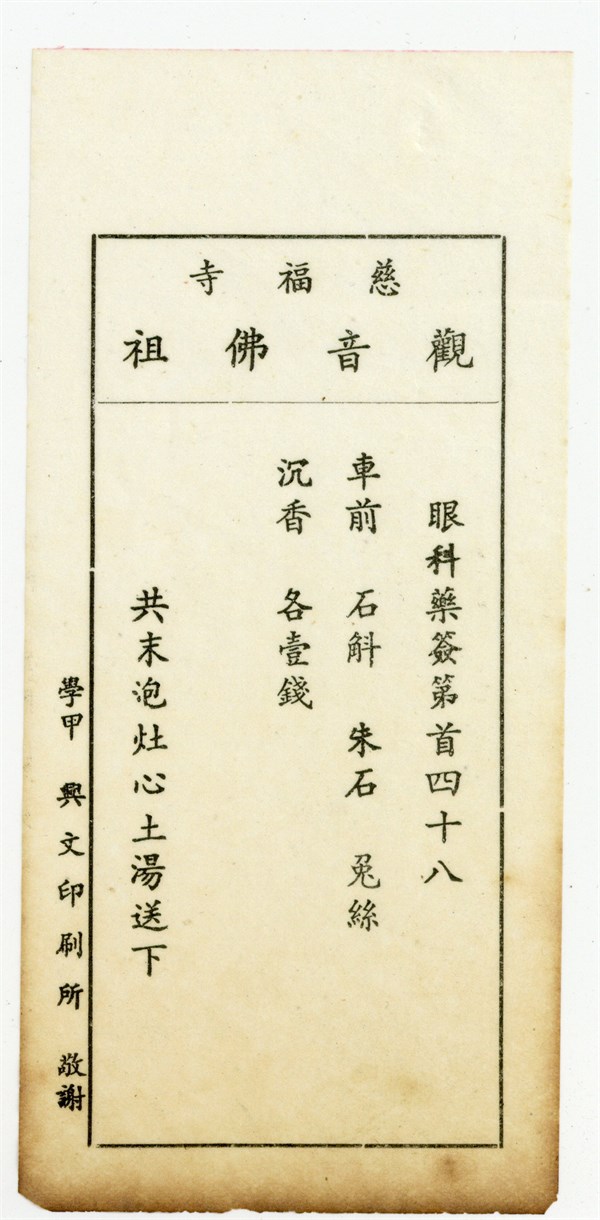 慈福寺
觀音佛祖
眼科藥簽第首四十八
車前 石斛 朱石 兔絲
沉香 各壹錢
共末泡灶心土湯送下
學甲 興文印刷所 敬謝